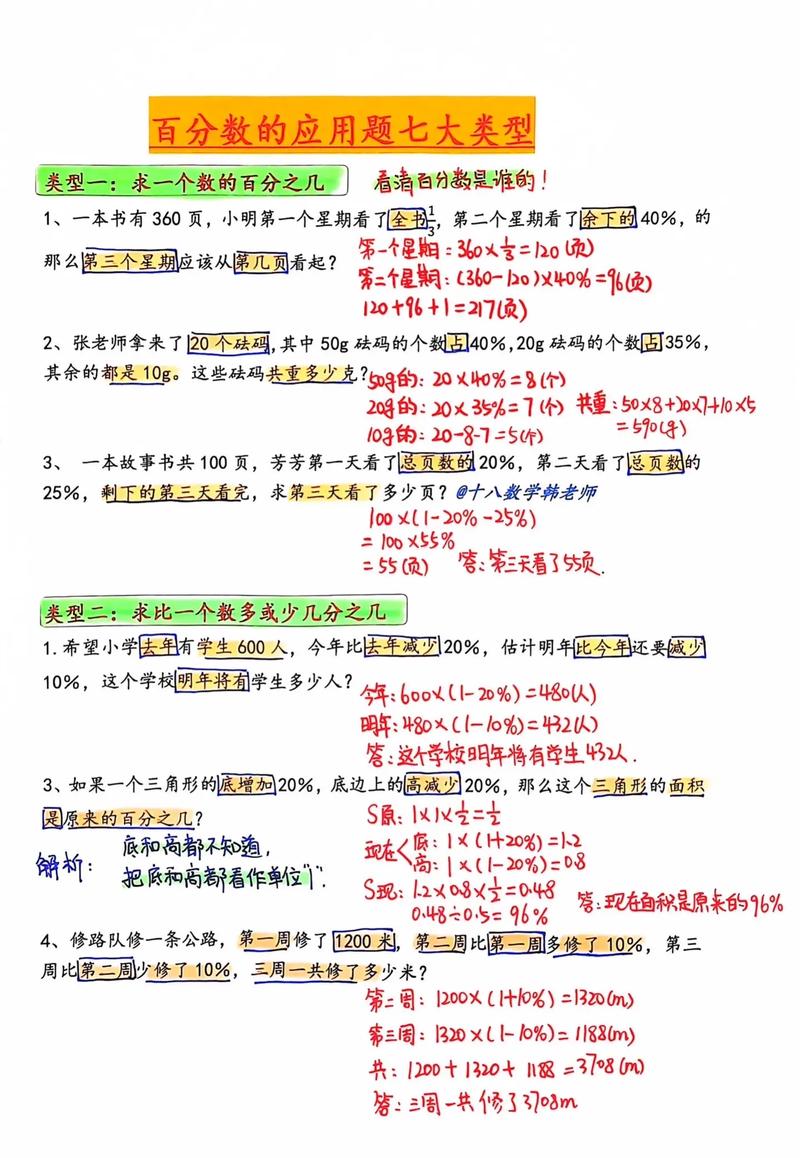 百分数的应用题七大类型
类型一：求一个数的百分之几 看清百分数是谁的！
1、一本书有360页，小明第一个星期看了全书1/3，第二个星期看了余下的40%，的
那么第三个星期应该从第几页看起？
第一个星期：360×1/3=120(页)
第二个星期：(360-120)×40%=96(页)
120+96+1=217(页)
2、张老师拿来了20个砝码,其中50g砝码的个数占40%,20g砝码的个数占35%，
其余的都是10g。这些砝码共重多少克?
50g的：20×40%=8(个)
20g的：20×35%=7(个) 共重：50×8+20×7+10×5
10g的：20-8-7=5(个) =590(g)
3、一本故事书共100页，芳芳第一天看了总页数的20%，第二天看了总页数的
25%，剩下的第三天看完，求第三天看了多少页？@十八数学韩老师
100×(1-20%-25%)
=100×55%
=55(页) 答：第三天看了55页.
类型二：求比一个数多或少几分之几
1.希望小学去年有学生600人，今年比去年减少20%，估计明年比今年还要减少
10%，这个学校明年将有学生多少人？
今年：600×(1-20%)=480(人)
明年：480×(1-10%)=432(人)
答：这个学校明年将有学生432人.
3、如果一个三角形的底增加20%，底边上的高减少20%，那么这个三角形的面积
是原来的百分之几？
S原：1×1×1/2=1/2
解析：底和高都不知道，
把底和高都看作单位"1".
现在 底：1×(1+20%)=1.2
高：1×(1-20%)=0.8
S现：1.2×0.8×1/2=0.48
0.48÷0.5=96% 答：现在面积是原来的96%
4、修路队修一条公路，第一周修了1200米，第二周比第一周多修了10%，第三
周比第二周少修了10%，三周一共修了多少米？
第二周：1200×(1+10%)=1320(m)
第三周：1320×(1-10%)=1188(m)
共：1200+1320+1188=3708(m)
答：三周一共修了3708m